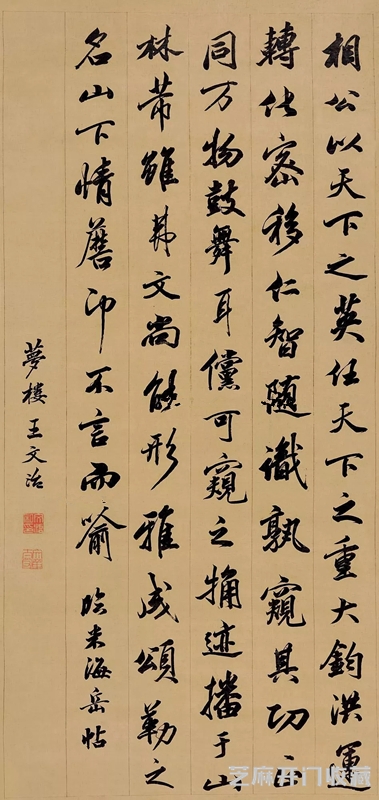 相公以天下之英任天下之重大鈞洪運
轉化密移仁智隨識孰窺其功正
同万物鼓舞耳儻可窺之觕迹播于山
林芾雖弗文尚能形雅成頌勒之
名山下情不言而喻 臨米海岳帖
夢樓王文治
芝麻开门收藏